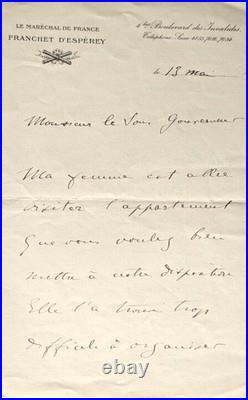 LE MARÉCHAL DE FRANCE
FRANCHET D'ESPÉREY
4 bis Boulevard des Invalides
Téléphone: Ségur
le 13 mai
Monsieur le Sous Gouverneur
Ma femme est allée
visiter l'appartement
que vous voulez bien
mettre à notre disposition
Elle l'a trouvé trop
difficile à organiser
www.bidfrance.com